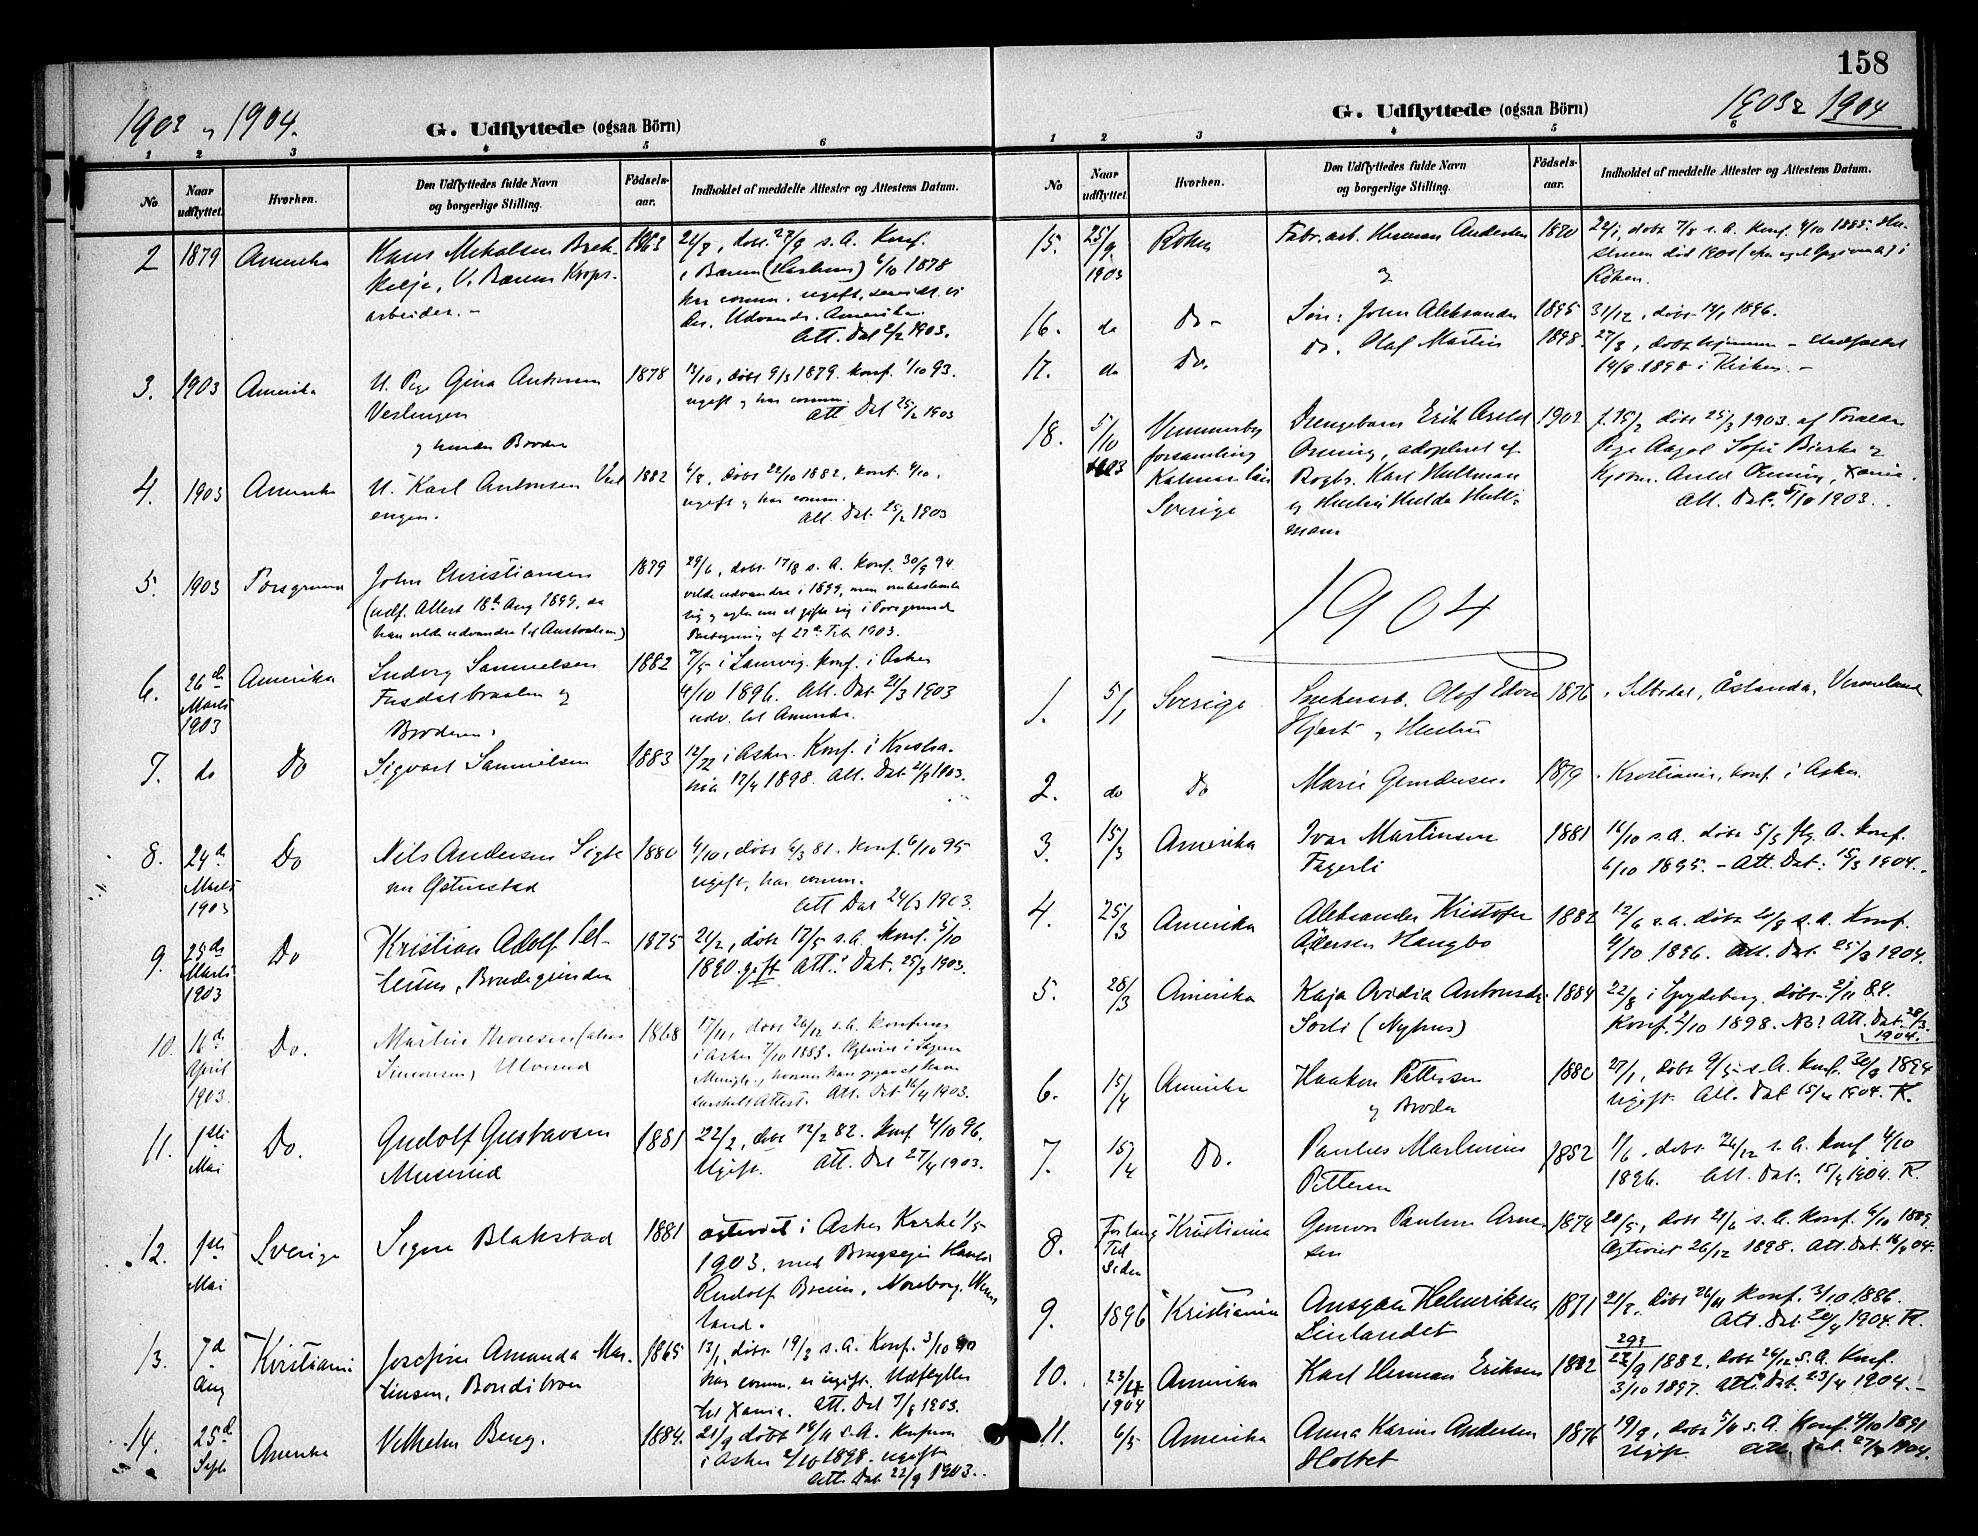 1903 & 1904.
G. Udflyttede (ogsaa Börn)
1 2 3 4 5 6
No
Naar udflyttet.
Hvorhen.
Den Udflyttedes fulde Navn og borgerlige Stilling.
Födsels-aar.
Indholdet af meddelte Attester og Attestens Datum.
2 1879 Amerika
arbeider. –
1863
i Bærum (Haslum) 6/10 1878
har comm. ugift,
Udvandr. Amerika.
Att. Dat 2/2 1903.
3. 1903 Amerika
U. Pige Gina Antonsen
Veslengen
og hendes Broder
1878
13/10, döbt 9/3 1879. Konf. 1/10 93.
ugift og har comm.
Att Dat 25/2 1903
4. 1903 Amerika
U. Karl Antonsen Vesl
engen.
1882
6/8, döbt 22/10 1882, konf. 4/10.
ugift og har comm.
Att. Dat. 25/2 1903
5. 1903 Porsgrund
John Christiansen
(udf. Attest 18d Aug 1899, da
han vilde udvandre til Australien)
1879
29/6, döbt 17/8 s. A. Konf. 30/9 94.
vilde udvandre i 1899, men ombestemte
sig og agter nu at gifte sig i Porsgrund
af 27d Feb 1903.
6. 26de Marts 1903 Amerika
Ludvig Samuelsen
Fusdalbraaten og
Broderen,
1882
7/5 i Laurvig. Konf. i Asker
4/10 1896. Att. Dat 21/3 1903
udv. til Amerika.
7. do Do
Sigvart Samuelsen
1883
i Asker. Konf. i Kristia-
nia 17/4 1898. Att. Dat 21/3 1903.
8. 24d Marts 1903 Do
Nils Andersen
1880
4/10, döbt 6/3 81. Konf. 6/10 95
ugift, har comm.
Att Dat 24/3 1903.
9. 25de Marts 1903 Do
Kristian Adolf Pet-
tersen, Bondegrinden
1875
21/2, döbt 17/5 s. A. Konf. 5/10
1890. gift Att. Dat. 25/3 1903.
10. 16d April 1903. Do.
Martin Thoresen (alias
Simonsen) Ulverud
1868
17/11, döbt 26/12 s. A. Konfirm
i Asker 7/10 1883.
Att. Dat 16/4 1903.
11. 1ste Mai Do.
Gudolf Gustavsen
Muserud
1881
22/2, döbt 12/2 82. Konf 4/10 96.
Ugift. Att. Dat 27/4 1903.
12. 1ste Mai Sverige
Signe Blakstad
1881
ægteviet i Asker Kirke 1/5
1903. med
Rudolf
land.
13. 7d Aug Kristiania
Josefine Amanda Mar-
tinsen, Bondibroen
1865
13/1, döbt 19/3 s. A. Konf. 3/10 80
har comm. er ugift. Udflyttet
til Xania. Att. Dat 7/8 1903.
14. 25d Septb Amerika
Vilhelm Berg.
1884.
21/9 döbt 16/11 s. A. Konfirm
i Asker 2/10 1898. ugift
Att. Dat. 22/9 1903.
158
G. Udflyttede (ogsaa Börn)
1903 & 1904
1 2 3 4 5 6
No
Naar udflyttet.
Hvorhen.
Den Udflyttedes fulde Navn og borgerlige Stilling.
Födsels-aar.
Indholdet af meddelte Attester og Attestens Datum.
15. 25/9 1903 Röken
Fabr. arb. Herman Andersen
og
1870
22/1, döbt 7/8 s. A. Konf. 4/10 1885. Hu-
struen död 1900 (efter eget Opgivende) i
Röken.
16. do Do –
Sön: John Aleksander
1895
31/12, döbt 12/1 1896.
17. do Do.
Do. Olaf Martin
1898.
27/3, döbt hjemme – stadfæstet
14/8 1898 i Kirken. –
18. 5/10 1903
Vimmerby
forsamling
Kalmar län
Sverige
Drengebarn Erik Arild
Orning, adopteret af
Bogh. Karl Hultman
og Hustru Hulda Hult-
man
1902
f. 15/2 döbt 25/3 1903. af Forældre
Pige Aagot Sofie Bjerke og
Arild Orning, Xania.
Att. Dat. 5/10 1903.
1904
1. 5/1 Sverige
Snekkerarb. Olof Edvin
Hjert og Hustru
1876
Silbodal, Vermeland
2. do Do
Marie Gundersen
1879
Kristiania, konf. i Asker.
3. 15/3 Amerika
Ivar Martinsen
Fagerli
1881
16/10 s. A. döbt 5/3 flg. A. Konf.
6/10 1895. – Att. Dat: 15/3 1904.
4. 25/3 Amerika
Aleksander Kristofer
Haugbo
1882
12/6 s. A. döbt 20/8 s. A. Konf.
4/10 1896. Att. Dat. 25/3 1904.
5. 28/3 Amerika
Kaja Ovidia Antonsdr.
Sorli (Nyhus)
1884
22/8 i Spydeberg. döbt 2/11 84.
Konf. 2/10 1898. No! Att. Dat. 28/3.
1904.
6. 15/4 Amerika
Haakon Pettersen
og Broder
1880
27/1, döbt 9/5 s. A. Konf. 30/9 1894
Ugift. Att. Dat 15/4 1904. K.
7. 15/4 Do.
Paulus Martinius
Pettersen
1882
1/6, döbt 26/12 s. A. Konf 4/10
1896. Att. Dat. 15/4 1904. K
8. For lang Tid Siden Kristiania
Gunvor Pauline Arne-
sen
1874
20/5, döbt 21/6 s. A. Konf. 6/10 1889.
Ægteviet 26/12 1898. Att. Dat. 16/4 04.
9. 1896 Kristiania
Ansgar Henriksen
Linlandet
1871
21/8, döbt 26/11 Konf. 3/10 1886.
Att. Dat. 20/4 1904. K.
10. 23/4 1904 Amerika
Karl Herman Eriksen
1882
23/9 1882, döbt 26/12 s. A. Konf.
3/10 1897. Att. Dat. 23/4 1904. –
11. 6/5 Amerika
Anna Karine Andersen
Holtet
1876
19/9, döbt 5/11 s. A. Konf. 4/10 1891
Ugift. Att. Dat. 1904.